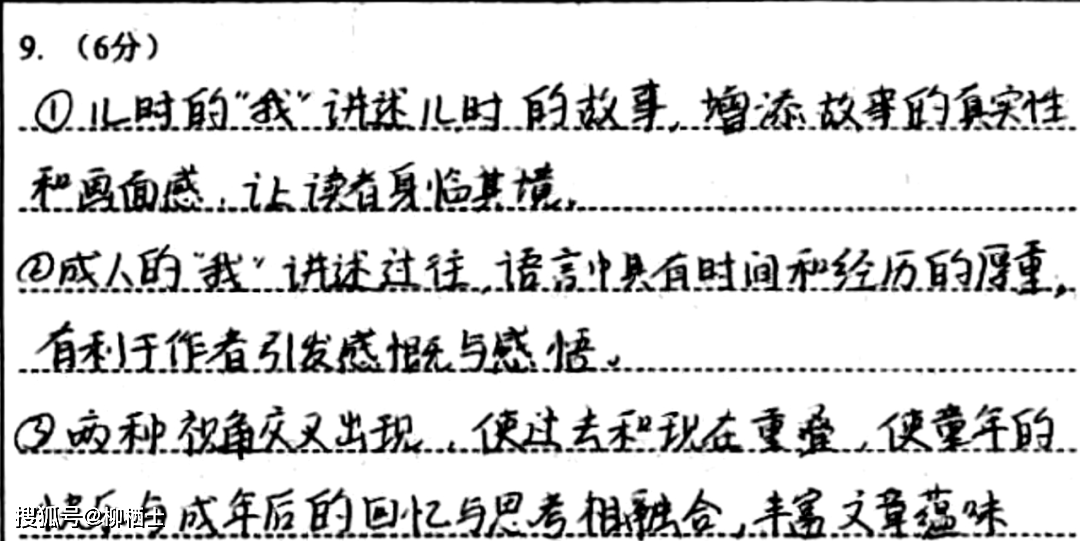 9.（6分）
①儿时的“我”讲述儿时的故事，增添故事的真实性
和画面感，让读者身临其境。
②成人的“我”讲述过往，语言中具有时间和经历的厚重，
有利于作者引发感慨与感悟。
③两种视角交叉出现，使过去和现在重叠，使童年的
与成年后的回忆与思考相融合，丰富文章蕴味
搜狐号@柳栖士